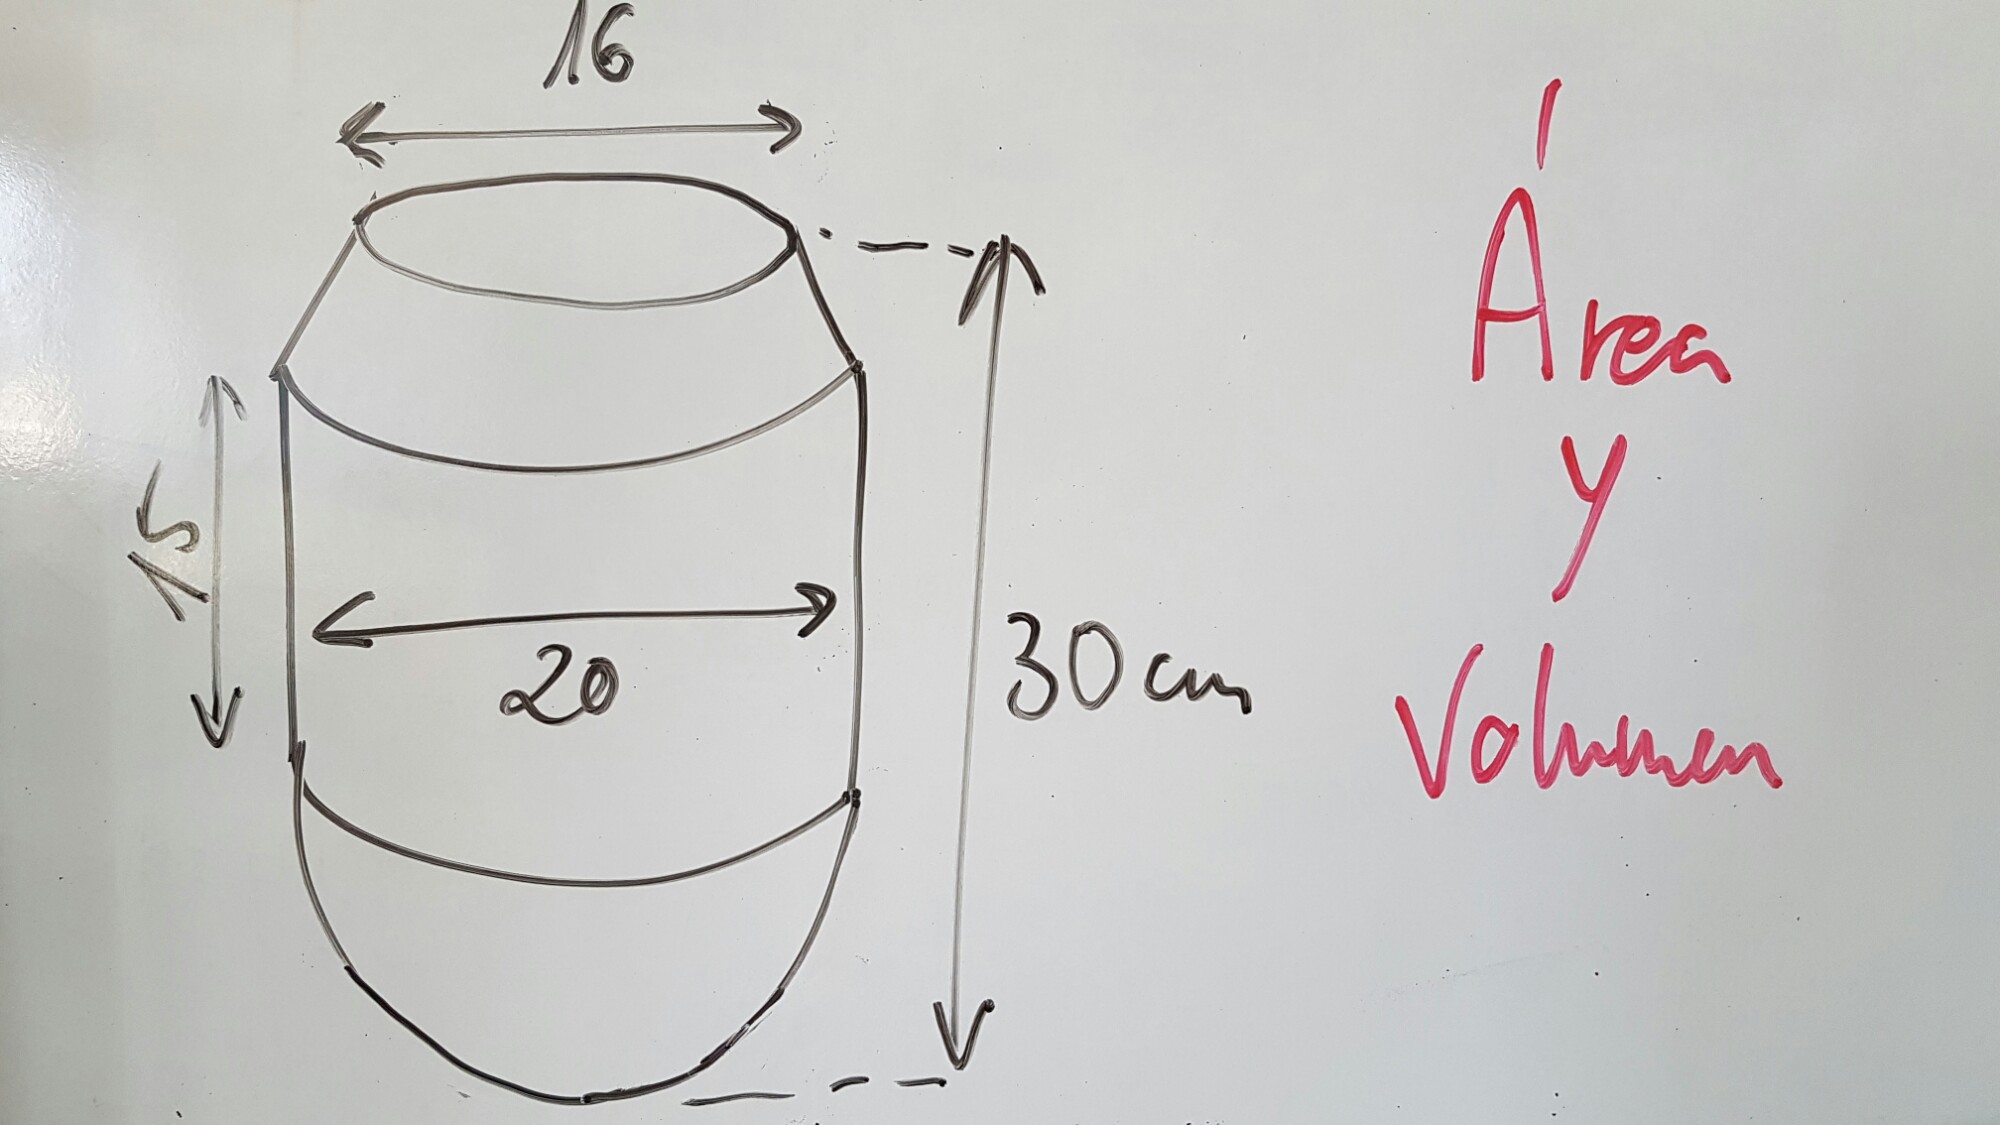 16
15
20
30 cm
Área
y
Volumen